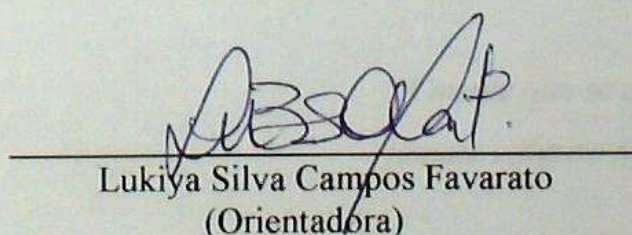 Lukiya Silva Campos Favarato
(Orientadora)